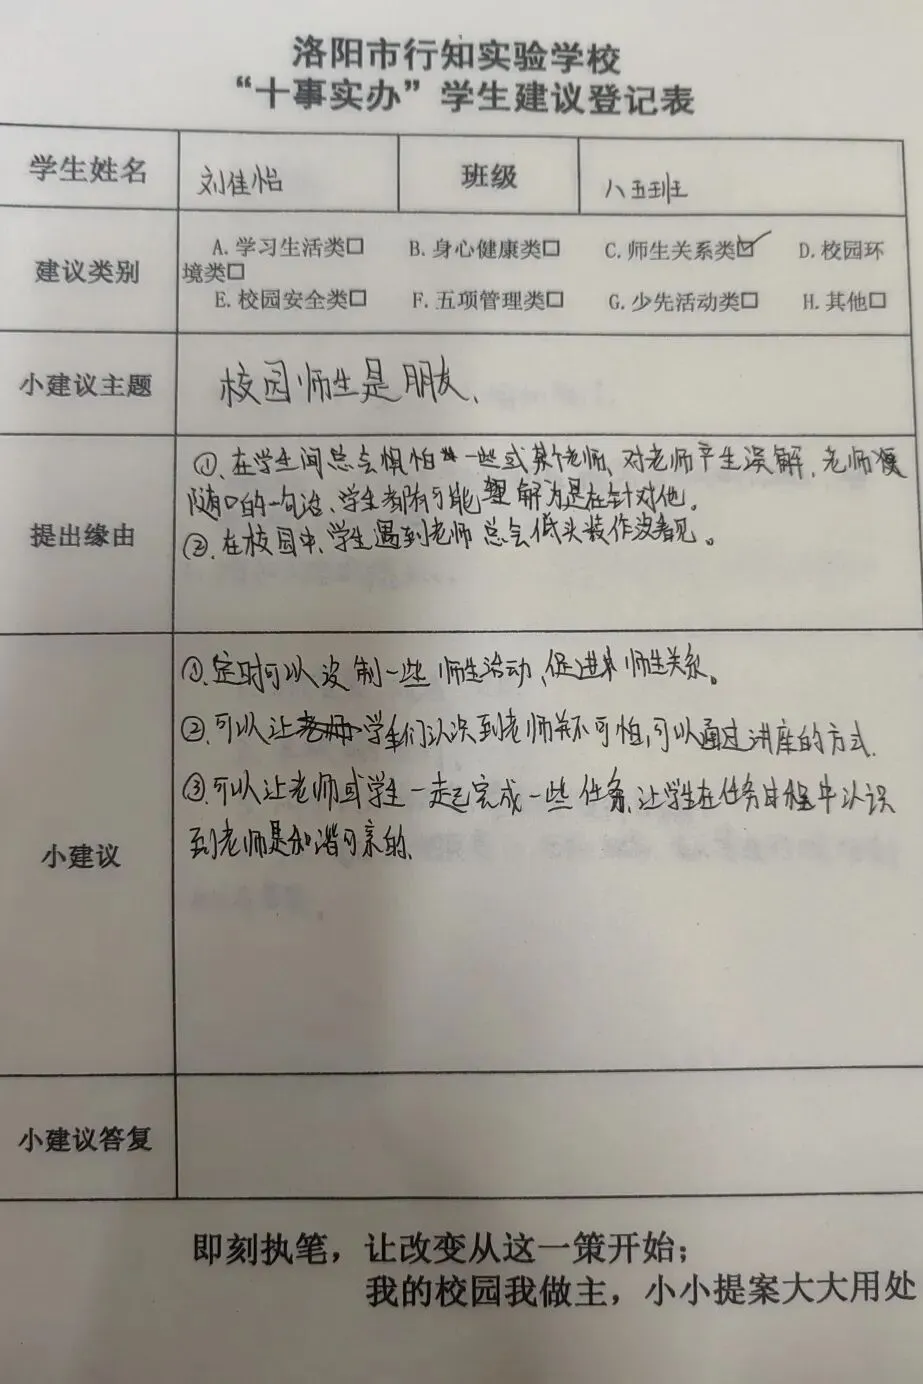 洛阳市行知实验学校
“十事实办”学生建议登记表
学生姓名 刘佳怡 班级 八五班
建议类别 A.学习生活类□ B.身心健康类□ C.师生关系类☑ D.校园环
境类□
E.校园安全类□ F.五项管理类□ G.少先活动类□ H.其他□
小建议主题 校园师生是朋友、
提出缘由
①、在学生间总会惧怕一些或某个老师、对老师产生误解、老师
随口的一句话、学生都有可能理解为是在针对他。
②、在校园中、学生遇到老师总会低头装作没看见。
小建议
①、定时可以设制一些师生活动、促进师生关系。
②、可以让学生们认识到老师并不可怕,可以通过讲座的方式.
③、可以让老师或学生一起完成一些任务、让学生在任务过程中认识
到老师是和谐可亲的、
小建议答复
即刻执笔，让改变从这一策开始；
我的校园我做主，小小提案大大用处